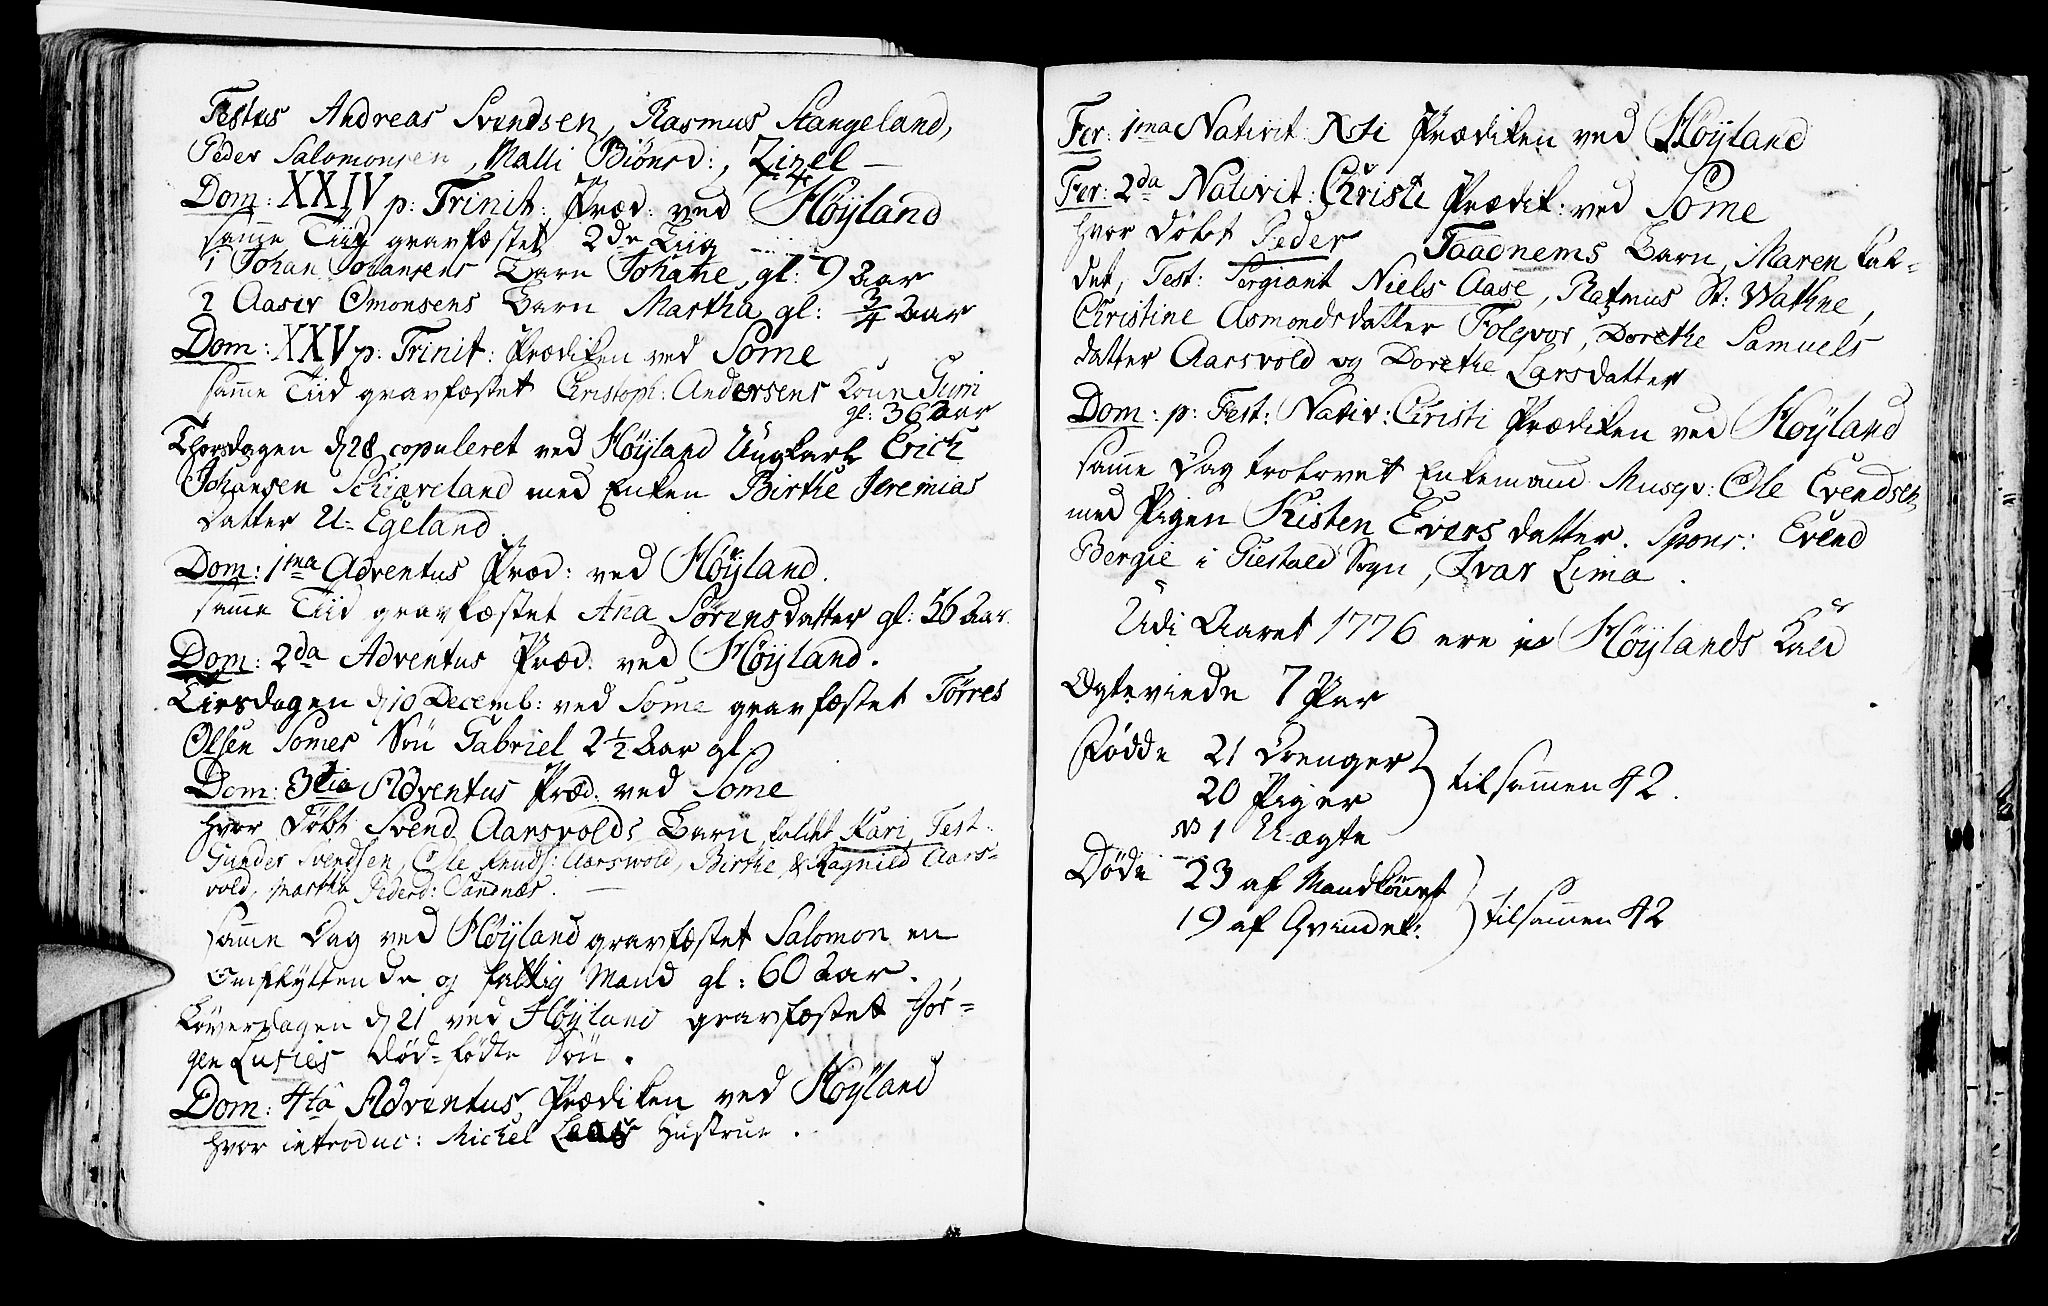 Testes Andreas Svendsen, Rasmus Stangeland,
Peder Salomonsen, Malli Biönsd:, Zizel —
Dom: XXIV p: Trinit: Præd: ved Höyland
samme Tiid gravfæstet 2de Liig
1 Johan Johansens Barn Johane, gl: 9 Aar
2 Aaser Omonsens Barn Martha gl: 3/4 Aar
Dom: XXV p: Trinit: Prædiken ved Some
samme Tiid gravfæstet Christoph: Andersens Kone Guri
gl: 36 Aar
Thorsdagen d 28 copuleret ved Höyland Ungkarl Erich
Johansen Schiæveland med Enken Birthe Jeremias
Datter U- Egeland.
Dom: 1ma Adventus Præd: ved Höyland.
samme Tiid gravfæstet Anna Sörensdatter gl: 56 Aar.
Dom: 2da Adventus Præd: ved Höyland.
Tirsdagen d 10 Decemb: ved Some gravfæstet Törres
Olsen Somes Sön Gabriel 2 1/2 Aar gl.
Dom: 3tia Adventus Præd: ved Some
hvor Döbt Svend Aarsvolds Barn kaldet Kari, Test:
Gunder Svendsen, Ole Knuds: Aarswold, Birthe, & Ragnild Aars-
vold, Martha Pedersd: Sandnæs. —
samme Dag ved Höyland gravfæstet Salomon en
Omflyttende og fattig Mand gl: 60 Aar.
Löverdagen d 21 ved Höyland gravfæstet Jör-
gen död-födte Sön.
Dom: 4ta Adventus, Prædiken ved Höyland
hvor introduc: Michel Hustrue.
Fer: 1ma Nativit: Xsti Prædiken ved Höyland
Fer: 2da Nativit: Christi Prædik: ved Some
hvor Döbt Peder Taadnems Barn, Maren kal-
det, Test: Sergiant Niels Aase, Rasmus St: Wathne,
Christine Asmondsdatter Folqvor, Dorethe Samuels
datter Aarsvold og Dorethe Larsdatter
Dom: p: Fest: Nativ: Christi Prædiken ved Höyland
samme Dag trolovet Enkemand Musqv: Ole Evendsen
med Pigen Kisten Evers datter. Spons: Evend
Bergie i Giestald Sogn, Ivar Lima.
Udi Aaret 1776 ere i Höylands Kald
Ægteviede 7 Par
Födde 21 Drenger
20 Piger tilsammen 42.
NB 1 U-ægte
Döde 23 af Mandkönnet
19 af Qvindek: tilsammen 42